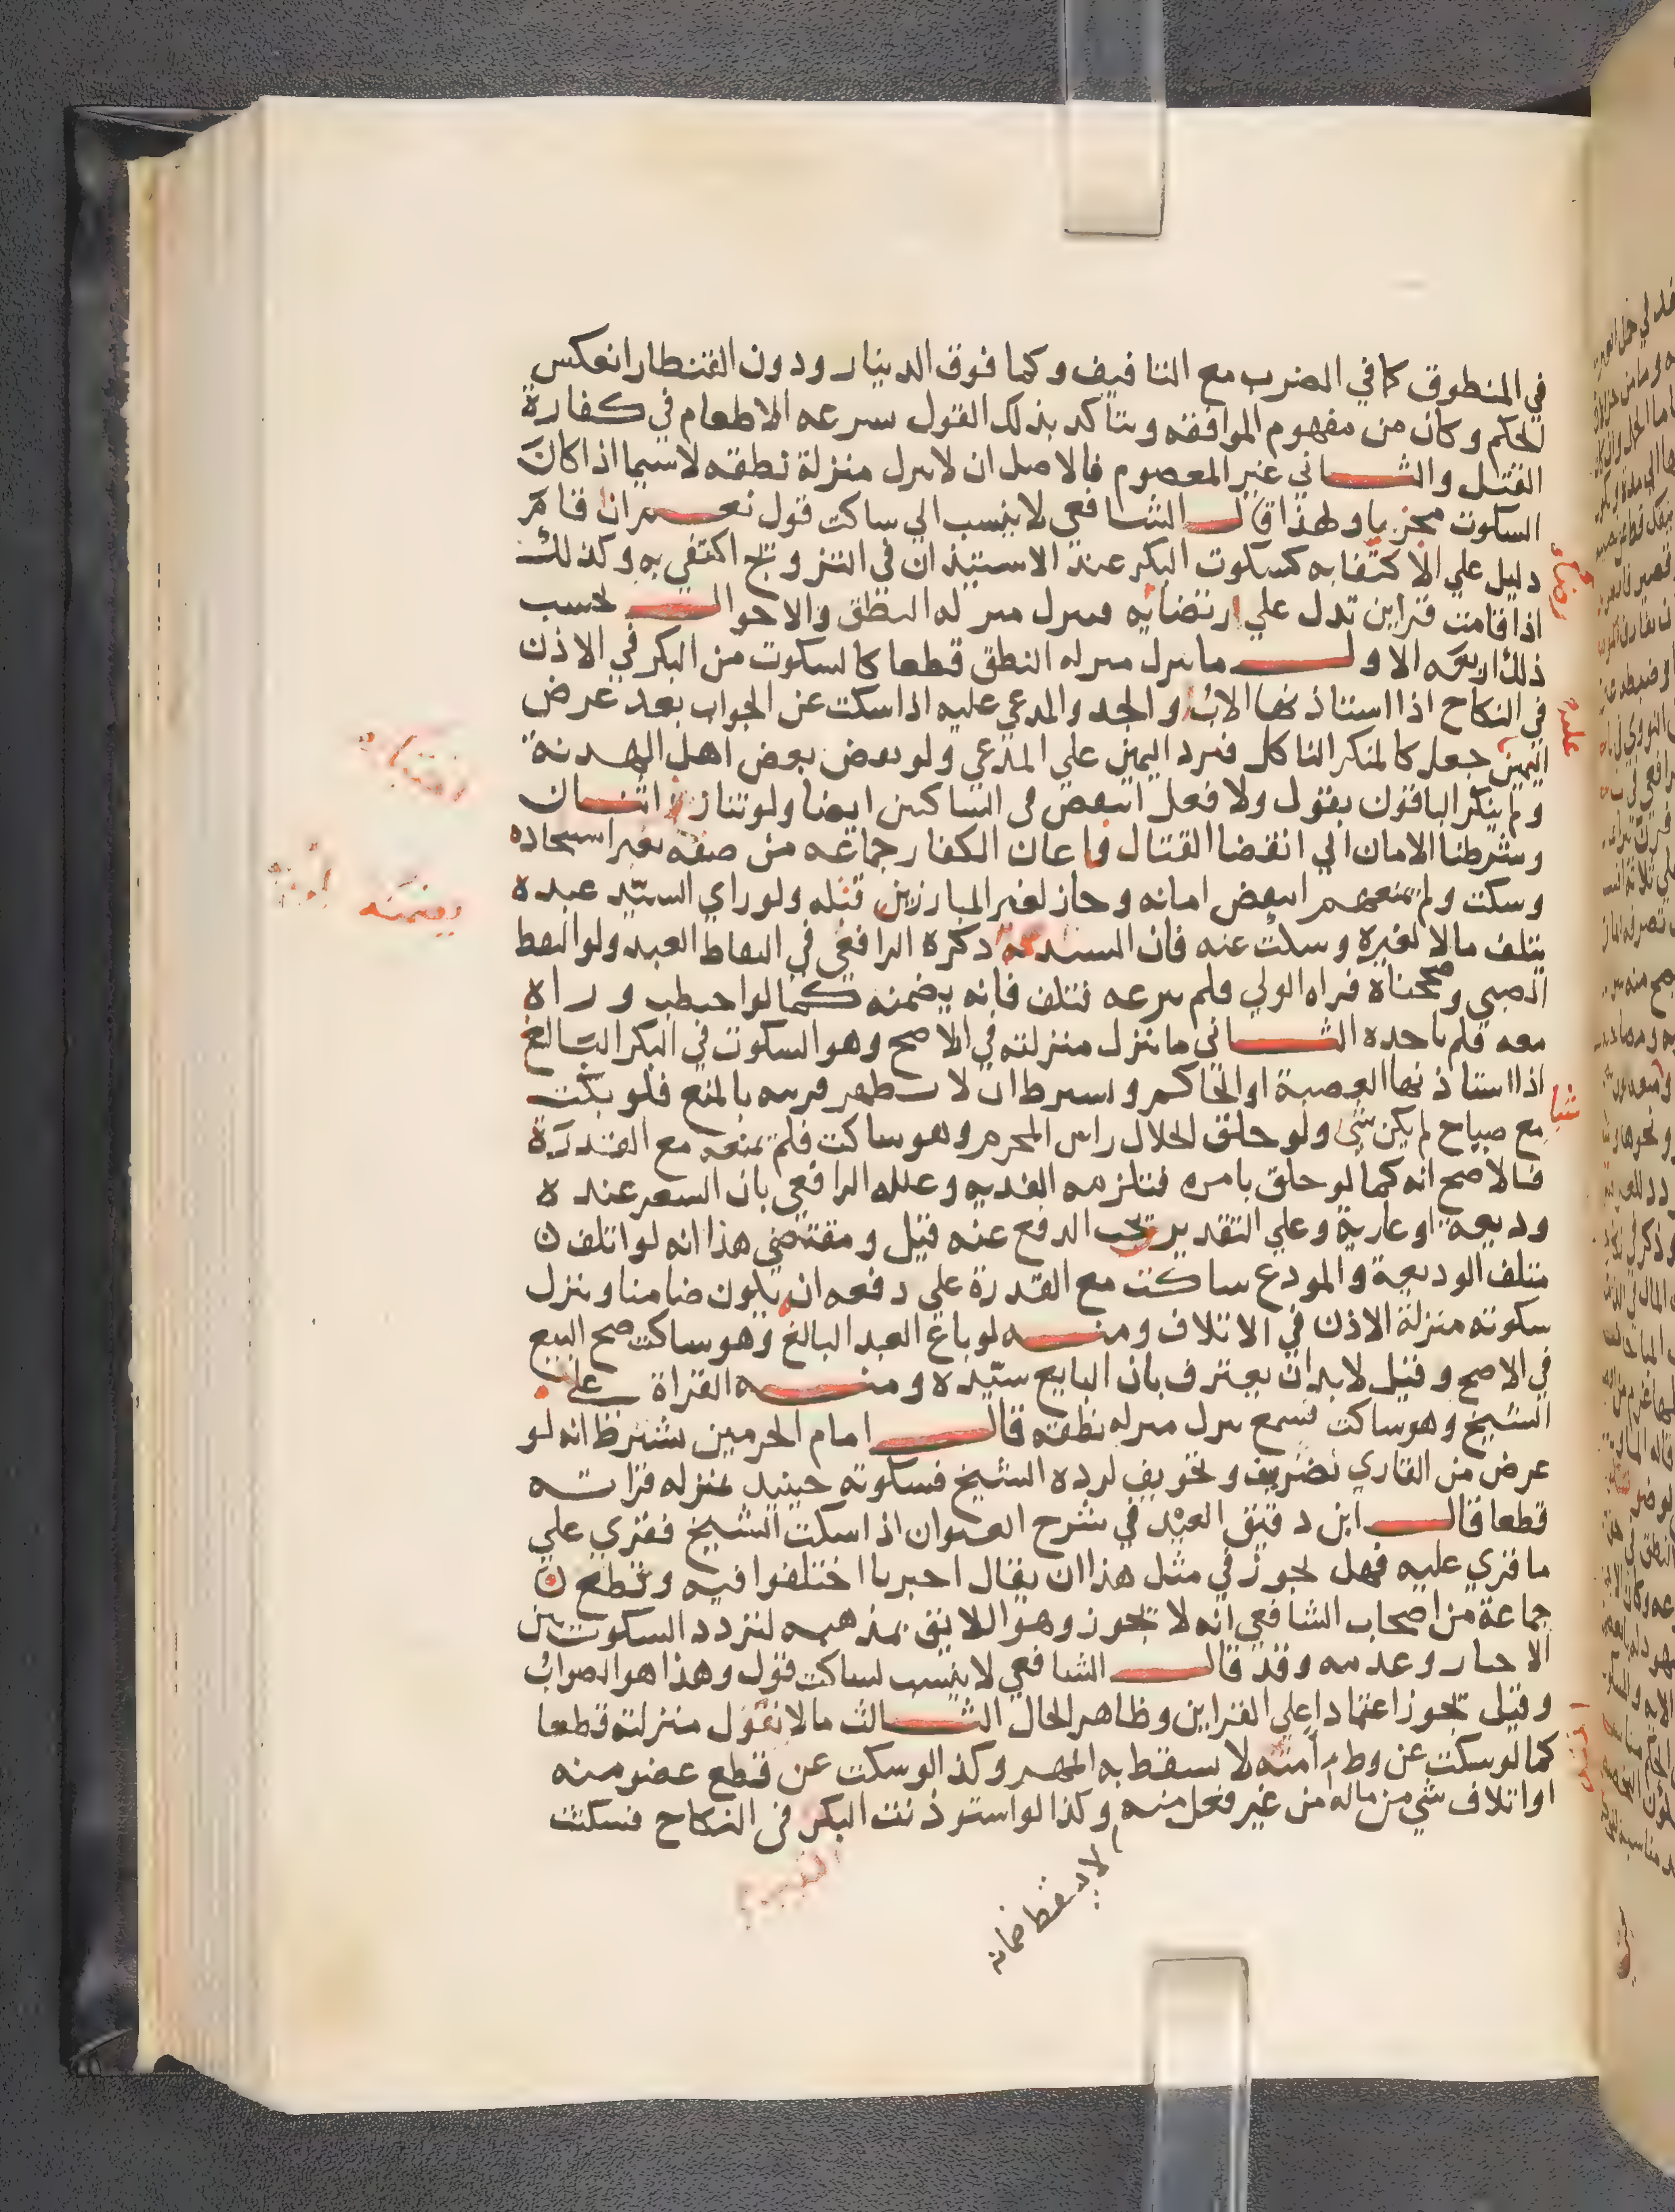 في المنطوق كما في الضرب مع التافيف وكما فوق الدينار ودون القنطار انعكس
الحكم وكان من مفهوم الموافقه ويتاكد بذلك القول سرعه الاطعام في كفارة
القتل والثاني غير المعصوم فالاصل ان لا ينزل منزلة نطقه لاسيما اذا كان
السكوت مجزيا ولهذا قال الشافعي لا ينسب الي ساكت قول نعم ان قام
دليل علي الاكتفا به كسكوت البكر عند الاستيذان في التزويج اكتفي به وكذلك
اذا قامت قراين تدل علي ارتضايه فينزل منزله النطق والاحوال بحسب
ذلك اربعه الاول ما ينزل منزله النطق قطعا كالسكوت من البكر في الاذن
في النكاح اذا استاذنها الاب او الجد والمدعي عليه اذا سكت عن الجواب بعد عرض
اليمين جعل كالمنكر الناكل فترد اليمين علي المدعي ولو نقض بعض اهل الهدنة
ولم ينكر الباقون بقول ولا فعل انتقض في الساكتين ايضا ولو تبارز اثنان
وشرطنا الامان الي انقضا القتال فاعان الكفار جماعه من صفه بغير استنجاده
وسكت ولم يمنعهم انتقض امانه وجاز لغير المبارزين قتله ولو راي السيد عبده
يتلف مالا لغيره وسكت عنه فان السيد ذكره الرافعي في التقاط العبد ولو التقط
الصبي وصححناه فراه الولي فلم ينزعه فتلف فانه يضمنه كما لو احتطب وراه
معه فلم ياخده الثاني ما ينزل منزلته في الاصح وهو السكوت في البكر البالغ
اذا استاذنها العصبة او الحاكم ويشترط ان لا تظهر قرينه بالمنع فلو بكت
مع صياح لم يكن شي ولو حلق الحلال راس المحرم وهو ساكت فلم يمنعه مع القدرة
فالاصح انه كما لو حلق بامره فتلزمه الفديه وعلله الرافعي بان الشعر عنده
وديعة او عارية وعلي التقدير يجب الدفع عنه قيل ومقتضي هذا انه لو اتلف
متلف الوديعة والمودع ساكت مع القدرة علي دفعه ان يكون ضامنا وينزل
سكوته منزلة الاذن في الاتلاف ومنه لو باع العبد البالغ وهو ساكت صح البيع
في الاصح وقيل لابد ان يعترف بان البايع سيده ومنه القراة علي
الشيخ وهو ساكت فسمع ينزل منزله نطقه قال امام الحرمين بشرط انه لو
عرض من القاري تصحيف وتحريف لرده الشيخ فسكوته حينيذ بمنزله قراته
قطعا قال ابن دقيق العيد في شرح العنوان اذا سكت الشيخ فقري علي
ما قري عليه فهل يجوز في مثل هذا ان يقال اخبرنا اختلفوا فيه وقطع
جماعة من اصحاب الشافعي انه لا يجوز وهو اللايق بمذهبه لتردد السكوت بين
الاخبار وعدمه وقد قال الشافعي لا ينسب لساكت قول وهذا هو الصواب
وقيل يجوز اعتمادا علي القراين وظاهر الحال الثالث ما لا نقول منزلته قطعا
كما لو سكت عن وطء امته لا يسقط به المهر وكذا لو سكت عن قطع عضو منه
او اتلاف شي من ماله من غير فعل منه وكذا لو استوذنت البكر في النكاح فسكتت
لا يسقط ضمانه
يضمنه